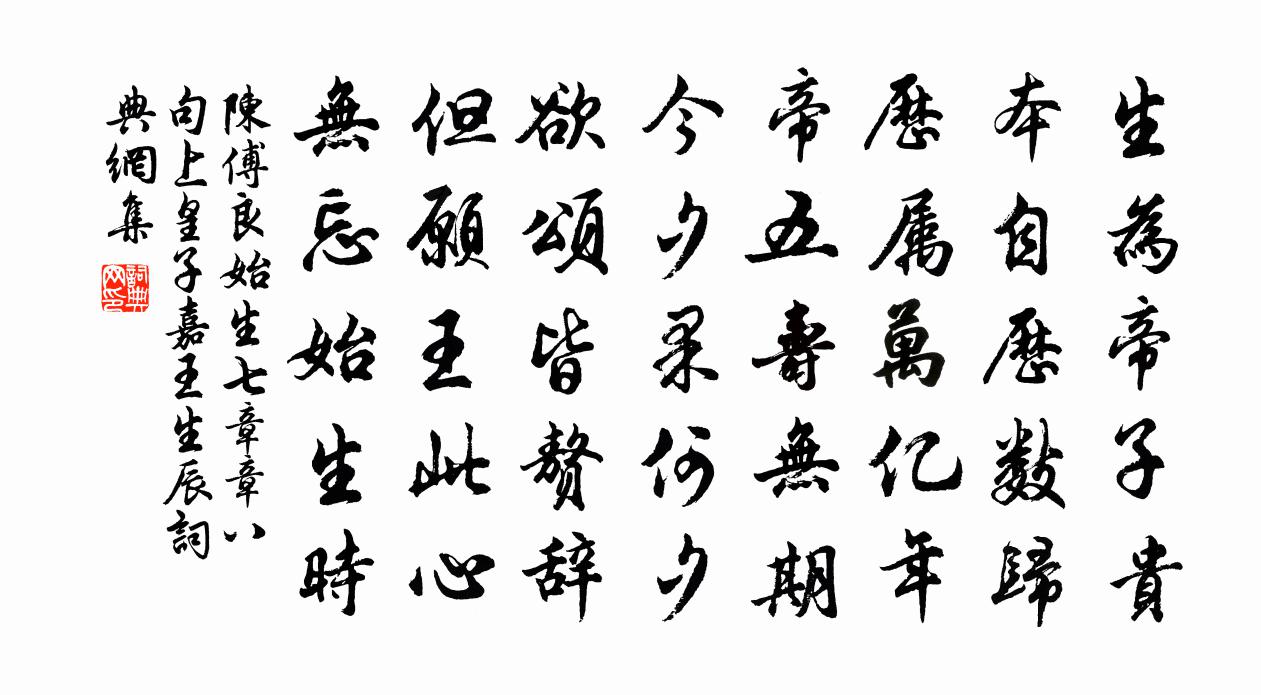 生為帝子貴
本自歷數歸
歷属萬亿年
帝五壽無期
今夕果何夕
欲頌皆贅辞
但願王此心
無忘始生時
陳傅良始生七章章八
句上皇子嘉王生辰詞
典網集
詞典网印